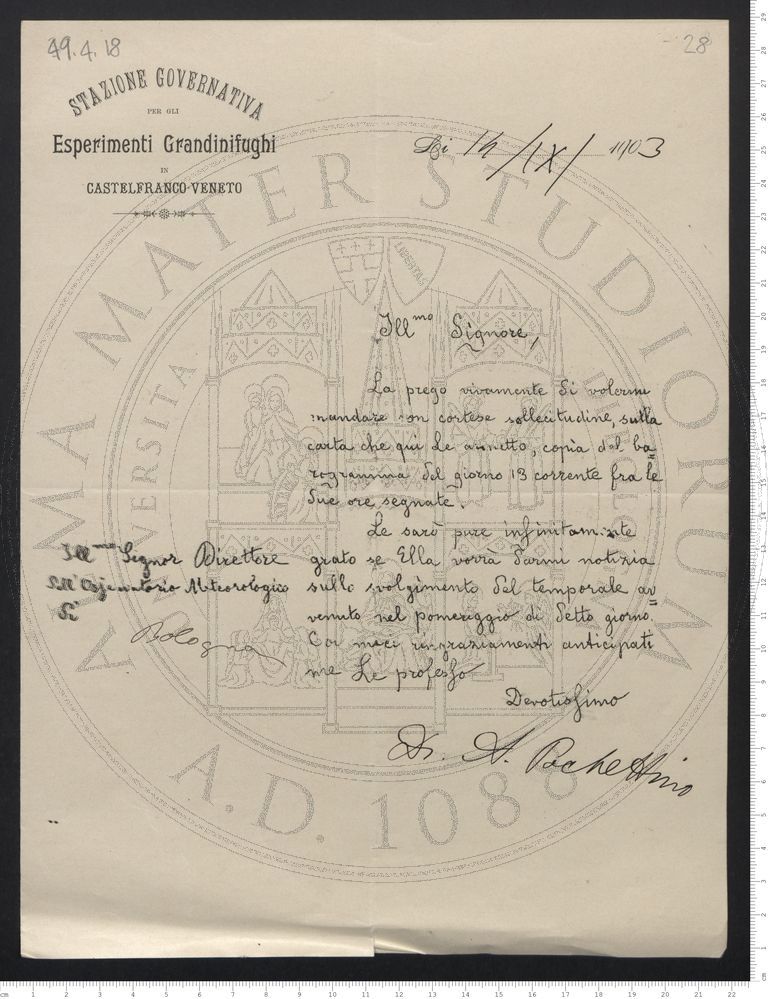 49.4.18
28
STAZIONE GOVERNATIVA
PER GLI
Esperimenti Grandinifughi
IN
CASTELFRANCO-VENETO
Li 14/IX/ 1903
Ill.mo Signore,
La prego vivamente di volermi
mandare con cortese sollecitudine, sulla
carta che qui Le annetto, copia del ba=
rogramma del giorno 13 corrente fra le
due ore segnate.
Le sarò pure infinitamente
grato se Ella vorrà darmi notizia
sullo svolgimento del temporale av=
venuto nel pomeriggio di detto giorno.
Coi miei ringraziamenti anticipati
me Le professo
Devotissimo
Dr. A. Pochettino
Ill.mo Signor Direttore
dell'Osservatorio Meteorologico
di
Bologna
ALMA MATER STUDIORUM
A.D. 1088
LIBERTAS